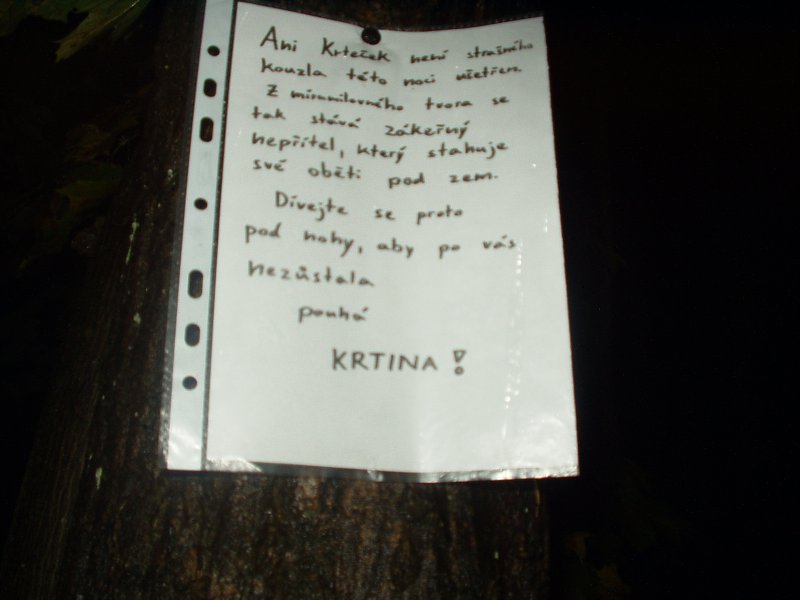 Ani Krteček není strašného
kouzla této noci ušetřen.
Z mírumilovného tvora se
tak stává zákeřný
nepřítel, který stahuje
své oběti pod zem.
Dívejte se proto
pod nohy, aby po vás
nezůstala
pouhá
KRTINA!